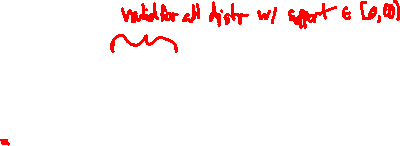 valid for all distr w/ support ∈ [0,∞)